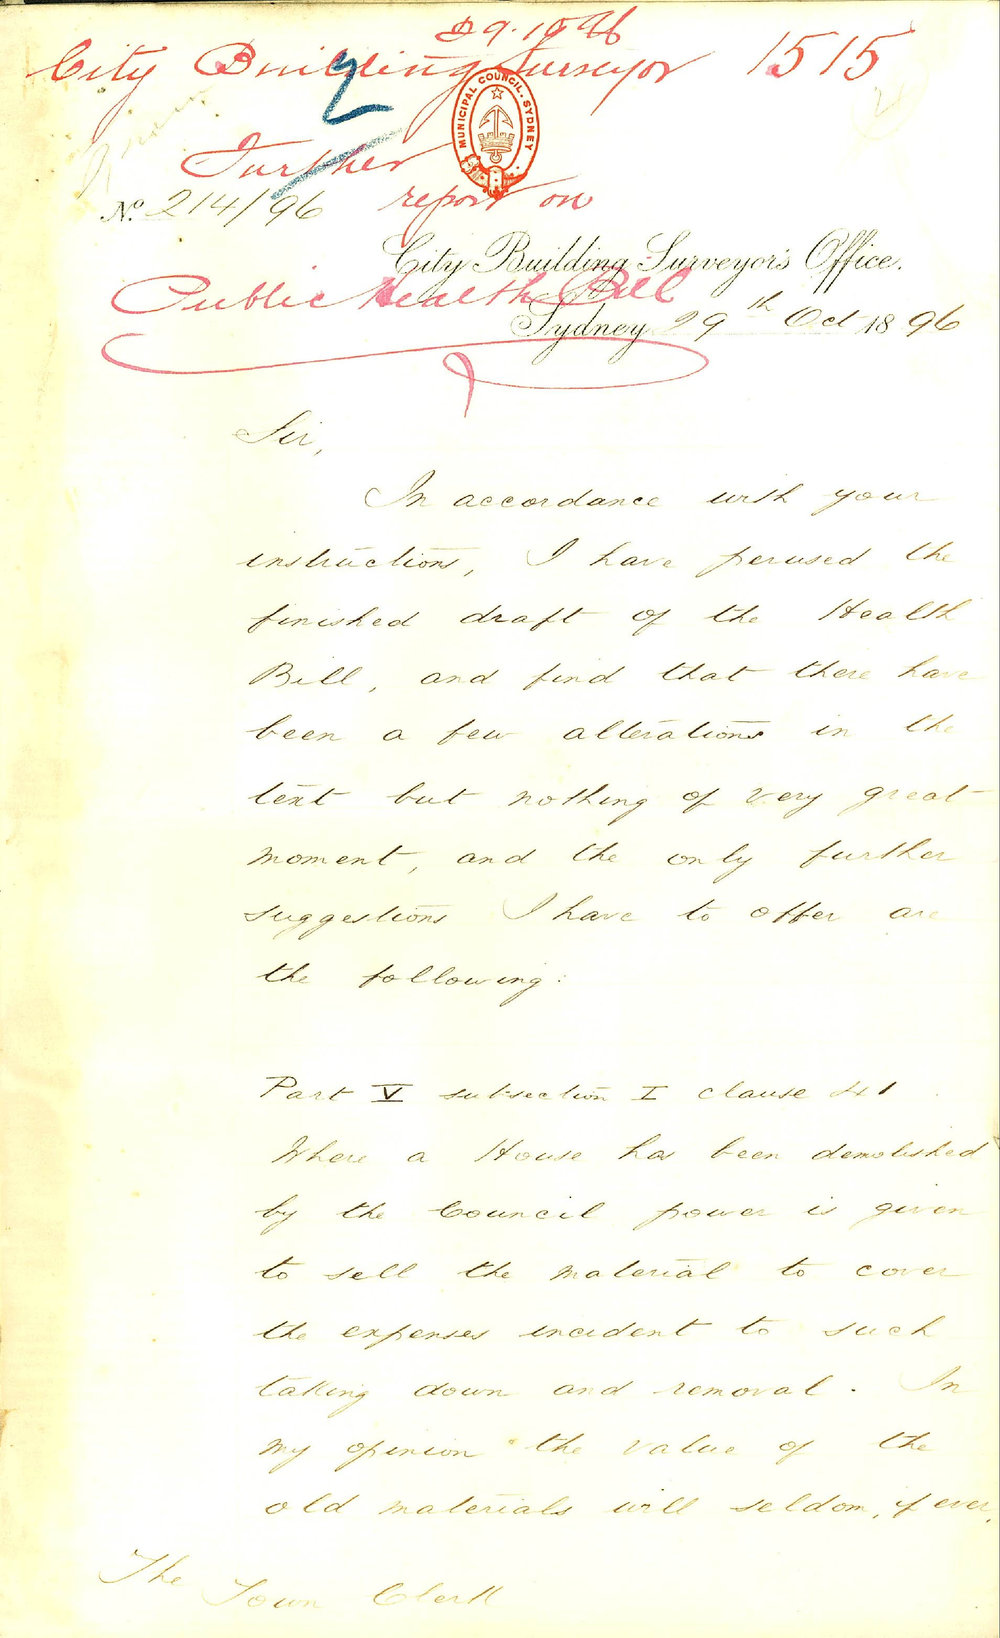 29.10.96
City Building Surveyor 1515
2
Further
report on
MUNICIPAL COUNCIL. SYDNEY
No. 214/96
City Building Surveyor's Office.
Public Health Bill
Sydney 29th Oct 1896
Sir,
In accordance with your
instructions, I have perused the
finished draft of the Health
Bill, and find that there have
been a few alterations in the
text but nothing of very great
moment, and the only further
suggestions I have to offer are
the following:
Part V subsection I clause 41.
Where a House has been demolished
by the Council power is given
to sell the material to cover
the expenses incident to such
taking down and removal. In
my opinion the value of the
old materials will seldom, if ever,
The
Town Clerk